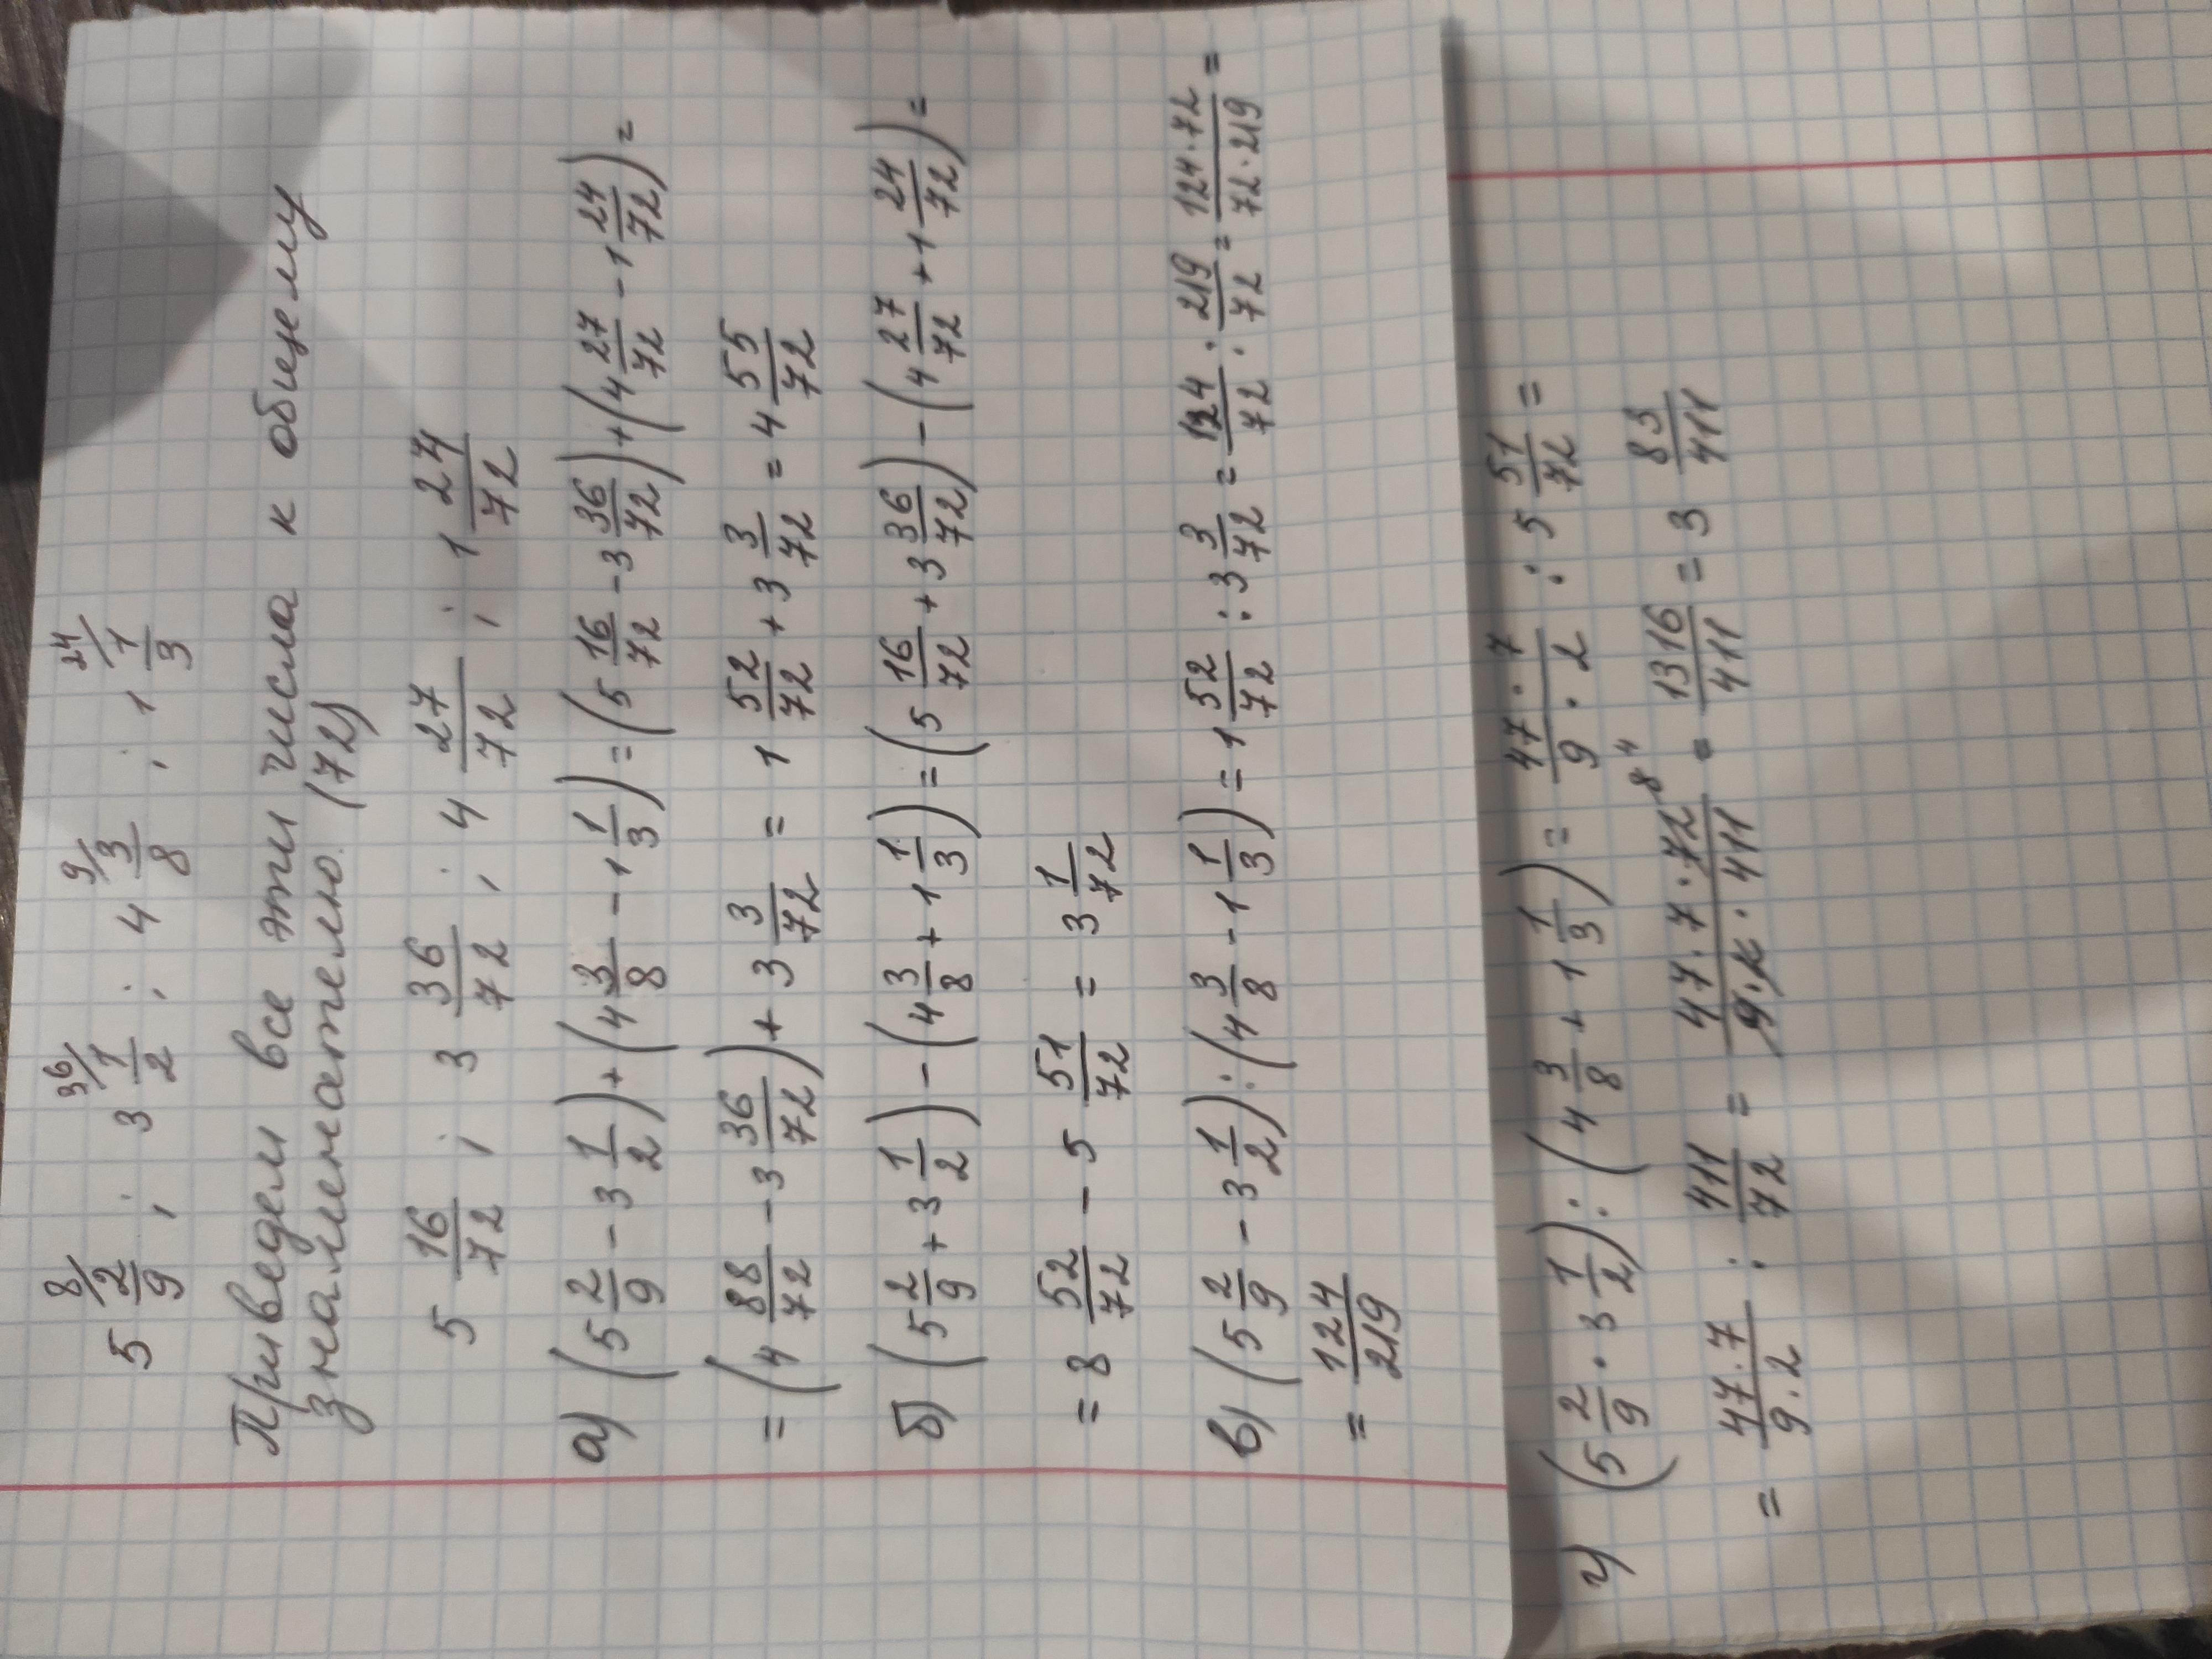 5 8/ 2/9 ; 3 36/ 1/2 ; 4 9/ 3/8 ; 1 24/ 1/3
Приведем все эти числа к общему
знаменателю. (72)
5 16/72 ; 3 36/72 ; 4 27/72 ; 1 24/72
а) (5 2/9 - 3 1/2) + (4 3/8 - 1 1/3) = (5 16/72 - 3 36/72) + (4 27/72 - 1 24/72) =
= (4 88/72 - 3 36/72) + 3 3/72 = 1 52/72 + 3 3/72 = 4 55/72
б) (5 2/9 + 3 1/2) - (4 3/8 + 1 1/3) = (5 16/72 + 3 36/72) - (4 27/72 + 1 24/72) =
= 8 52/72 - 5 51/72 = 3 1/72
в) (5 2/9 - 3 1/2) : (4 3/8 - 1 1/3) = 1 52/72 : 3 3/72 = 124/72 : 219/72 = 124·72/72·219 =
= 124/219
г) (5 2/9 · 3 1/2) : (4 3/8 + 1 1/3) = 47·7/9·2 : 5 51/72 =
= 47·7/9·2 : 411/72 = 47·7·72 8 4/9·2·411 = 1316/411 = 3 83/411